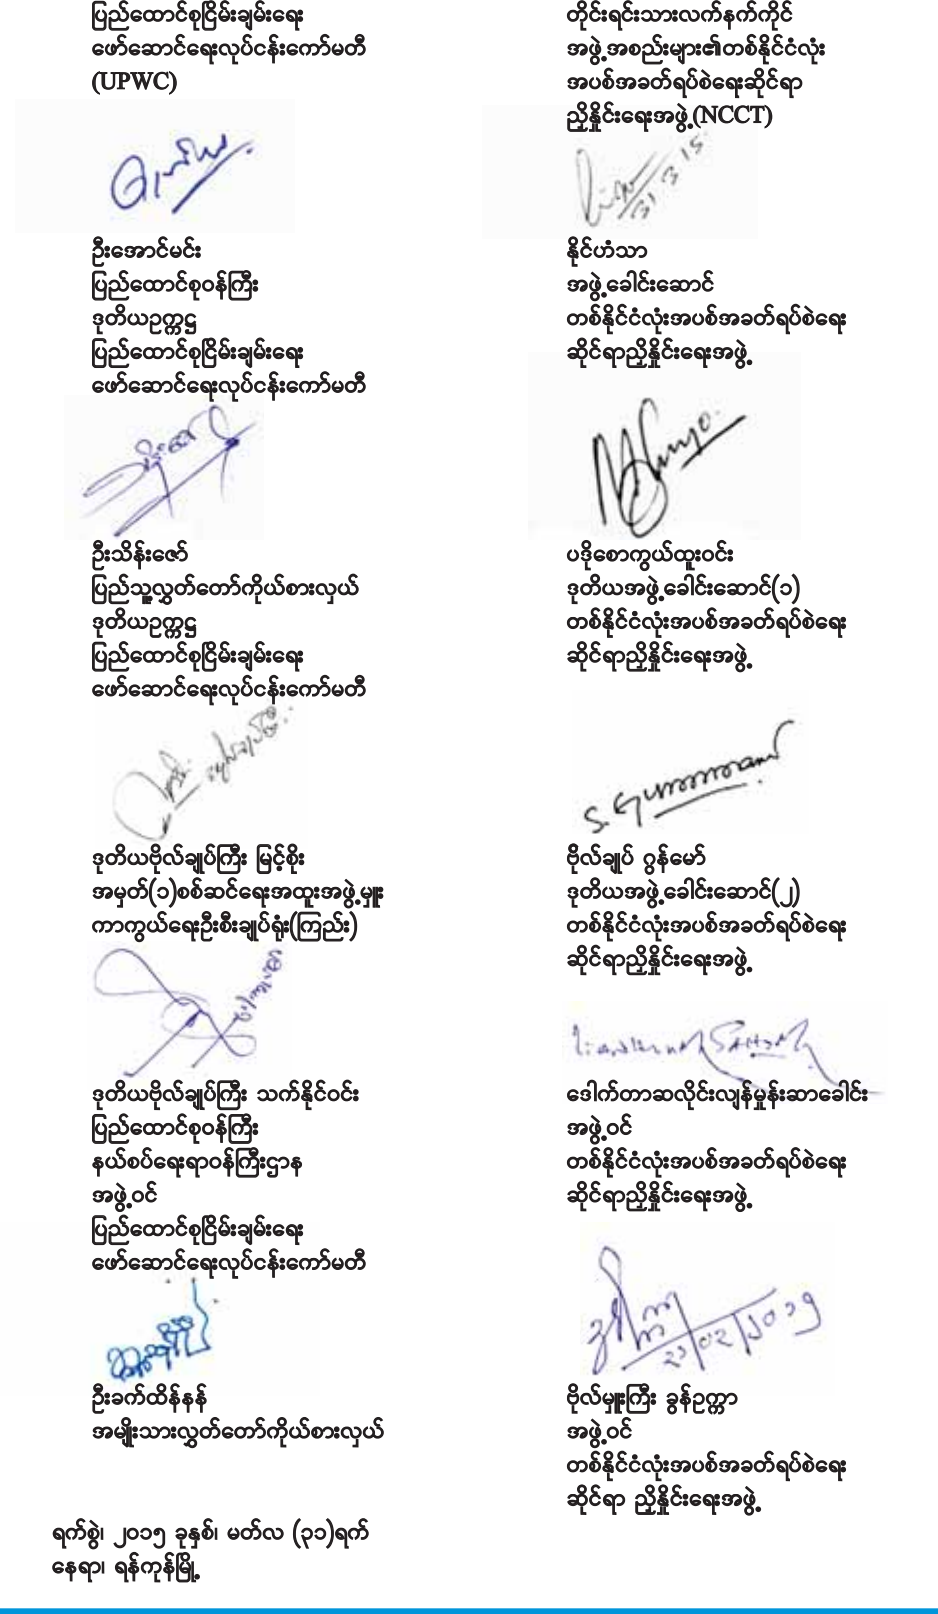 ပြည်ထောင်စုငြိမ်းချမ်းရေး
ဖော်ဆောင်ရေးလုပ်ငန်းကော်မတီ
(UPWC)
ဦးအောင်မင်း
ပြည်ထောင်စုဝန်ကြီး
ဒုတိယဥက္ကဋ္ဌ
ပြည်ထောင်စုငြိမ်းချမ်းရေး
ဖော်ဆောင်ရေးလုပ်ငန်းကော်မတီ
ဦးသိန်းဇော်
ပြည်သူ့လွှတ်တော်ကိုယ်စားလှယ်
ဒုတိယဥက္ကဋ္ဌ
ပြည်ထောင်စုငြိမ်းချမ်းရေး
ဖော်ဆောင်ရေးလုပ်ငန်းကော်မတီ
ဒုတိယဗိုလ်ချုပ်ကြီး မြင့်စိုး
အမှတ်(၁)စစ်ဆင်ရေးအထူးအဖွဲ့မှူး
ကာကွယ်ရေးဦးစီးချုပ်ရုံး(ကြည်း)
ဒုတိယဗိုလ်ချုပ်ကြီး သက်နိုင်ဝင်း
ပြည်ထောင်စုဝန်ကြီး
နယ်စပ်ရေးရာဝန်ကြီးဌာန
အဖွဲ့ဝင်
ပြည်ထောင်စုငြိမ်းချမ်းရေး
ဖော်ဆောင်ရေးလုပ်ငန်းကော်မတီ
ဦးခက်ထိန်နန်
အမျိုးသားလွှတ်တော်ကိုယ်စားလှယ်
တိုင်းရင်းသားလက်နက်ကိုင်
အဖွဲ့အစည်းများ၏တစ်နိုင်ငံလုံး
အပစ်အခတ်ရပ်စဲရေးဆိုင်ရာ
ညှိနှိုင်းရေးအဖွဲ့(NCCT)
31.3.15
နိုင်ဟံသာ
အဖွဲ့ခေါင်းဆောင်
တစ်နိုင်ငံလုံးအပစ်အခတ်ရပ်စဲရေး
ဆိုင်ရာညှိနှိုင်းရေးအဖွဲ့
ပဒိုစောကွယ်ထူးဝင်း
ဒုတိယအဖွဲ့ခေါင်းဆောင်(၁)
တစ်နိုင်ငံလုံးအပစ်အခတ်ရပ်စဲရေး
ဆိုင်ရာညှိနှိုင်းရေးအဖွဲ့
ဗိုလ်ချုပ် ဂွန်မော်
ဒုတိယအဖွဲ့ခေါင်းဆောင်(၂)
တစ်နိုင်ငံလုံးအပစ်အခတ်ရပ်စဲရေး
ဆိုင်ရာညှိနှိုင်းရေးအဖွဲ့
ဒေါက်တာဆလိုင်းလျန်မှုန်းဆာခေါင်း
အဖွဲ့ဝင်
တစ်နိုင်ငံလုံးအပစ်အခတ်ရပ်စဲရေး
ဆိုင်ရာညှိနှိုင်းရေးအဖွဲ့
ဗိုလ်မှူးကြီး ခွန်ဥက္ကာ
အဖွဲ့ဝင်
တစ်နိုင်ငံလုံးအပစ်အခတ်ရပ်စဲရေး
ဆိုင်ရာ ညှိနှိုင်းရေးအဖွဲ့
ရက်စွဲ၊ ၂၀၁၅ ခုနှစ်၊ မတ်လ (၃၁)ရက်
နေရာ၊ ရန်ကုန်မြို့